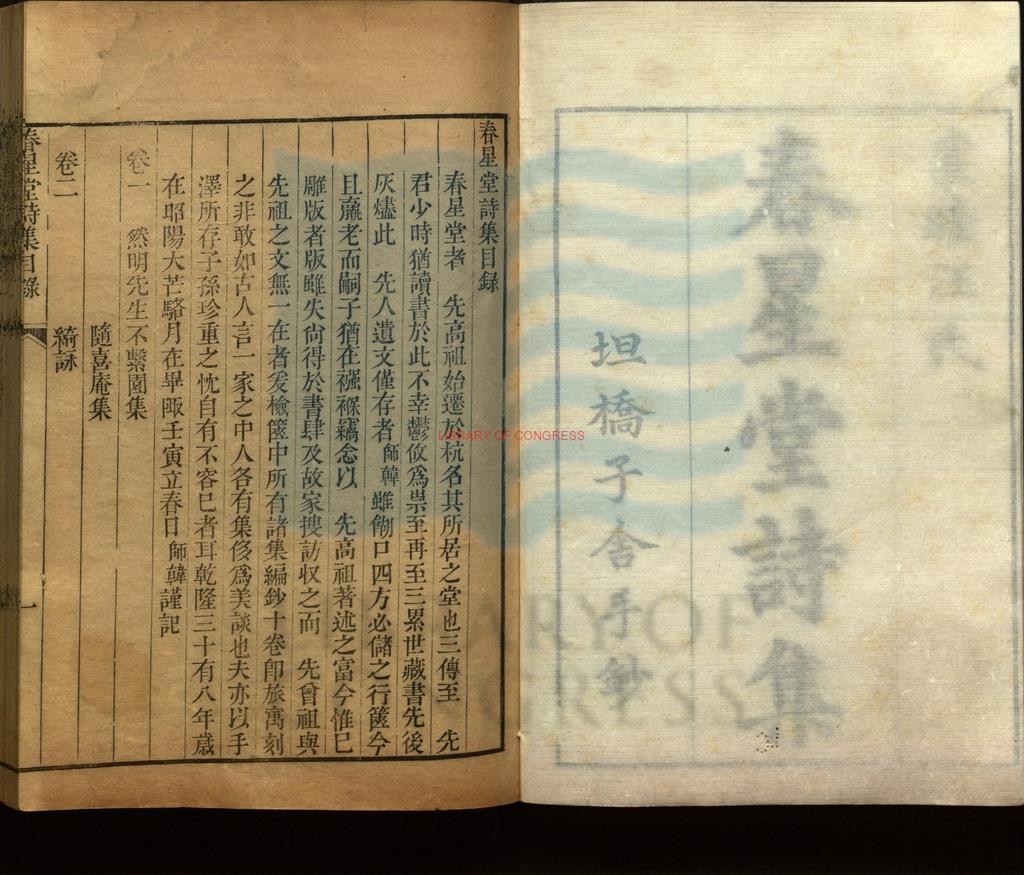 春星堂詩集
坦橋子舍手鈔
春星堂詩集目錄
春星堂者 先高祖始遷於杭名其所居之堂也三傳至 先
君少時猶讀書於此不幸鬱攸爲祟至再至三累世藏書先後
灰燼此 先人遺文僅存者師韓雖餬口四方必儲之行篋今
且羸老而嗣子猶在襁褓竊念以 先高祖著述之富今惟已
雕版者版雖失尙得於書肆及故家搜訪収之而 先曾祖與
先祖之文無一在者爰檢篋中所有諸集編鈔十卷卽旅寓刻
之非敢如古人言一家之中人各有集侈爲美談也夫亦以手
澤所存子孫珍重之忱自有不容已者耳乾隆三十有八年歲
在昭陽大芒駱月在畢陬壬寅立春日師韓謹記
卷一 然明先生不繫園集
隨喜庵集
卷二 綺詠
春星堂詩集目錄 一
LIBRARY OF CONGRESS